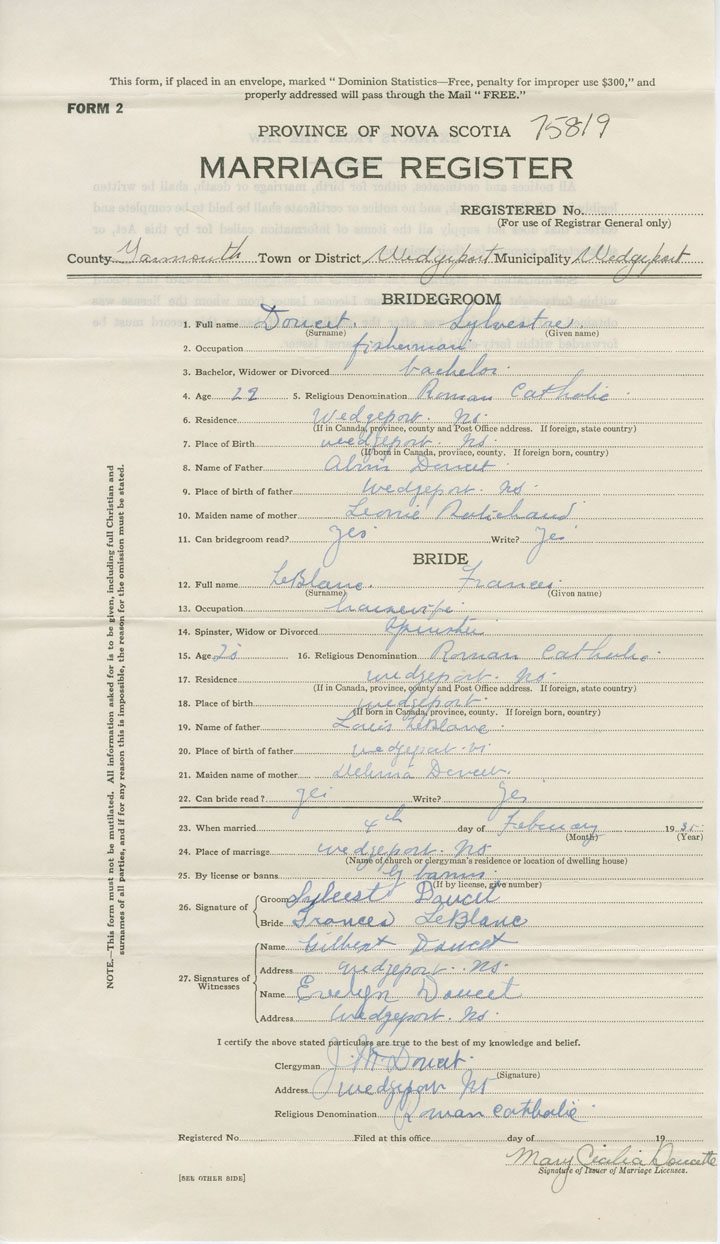 This form, if placed in an envelope, marked " Dominion Statistics—Free, penalty for improper use $300," and
properly addressed will pass through the Mail " FREE."
FORM 2
PROVINCE OF NOVA SCOTIA 75819
MARRIAGE REGISTER
REGISTERED No.
(For use of Registrar General only)
County Yarmouth Town or District Wedgeport Municipality Wedgeport
BRIDEGROOM
1. Full name Doucet. Sylvestre.
(Surname) (Given name)
2. Occupation fisherman
3. Bachelor, Widower or Divorced bachelor.
4. Age 29 5. Religious Denomination Roman Catholic
6. Residence Wedgeport. Ns.
(If in Canada, province, county and Post Office address. If foreign, state country)
7. Place of Birth wedgeport. Ns.
(If born in Canada, province, county. If foreign born, country)
8. Name of Father Doucet
9. Place of birth of father Wedgeport. Ns.
10. Maiden name of mother Leonie
11. Can bridegroom read? yes Write? yes
BRIDE
12. Full name LeBlanc. Frances.
(Surname) (Given name)
13. Occupation housewife
14. Spinster, Widow or Divorced Spinster
15. Age 16. Religious Denomination Roman Catholic.
17. Residence wedgeport. Ns.
(If in Canada, province, county and Post Office address. If foreign, state country)
18. Place of birth wedgeport.
(If born in Canada, province, county. If foreign born, country)
19. Name of father Louis LeBlanc.
20. Place of birth of father wedgeport. Ns
21. Maiden name of mother Doucet.
22. Can bride read? yes Write? yes
23. When married 4th day of February 1935
(Month) (Year)
24. Place of marriage wedgeport. Ns
(Name of church or clergyman's residence or location of dwelling house)
25. By license or banns by banns.
(If by license, give number)
26. Signature of Groom Sylvest Doucet
Bride Frances LeBlanc
27. Signatures of Witnesses Name Gilbert Doucet
Address wedgeport. Ns.
Name Evelyn Doucet
Address Wedgeport. Ns.
I certify the above stated particulars are true to the best of my knowledge and belief.
Clergyman J. M. Doucet.
(Signature)
Address wedgeport Ns
Religious Denomination Roman Catholic
Registered No. Filed at this office day of 19
Mary Cicilia Doucette
Signature of Issuer of Marriage Licenses.
[SEE OTHER SIDE]
NOTE.—This form must not be mutilated. All information asked for is to be given, including full Christian and
surnames of all parties, and if for any reason this is impossible, the reason for the omission must be stated.